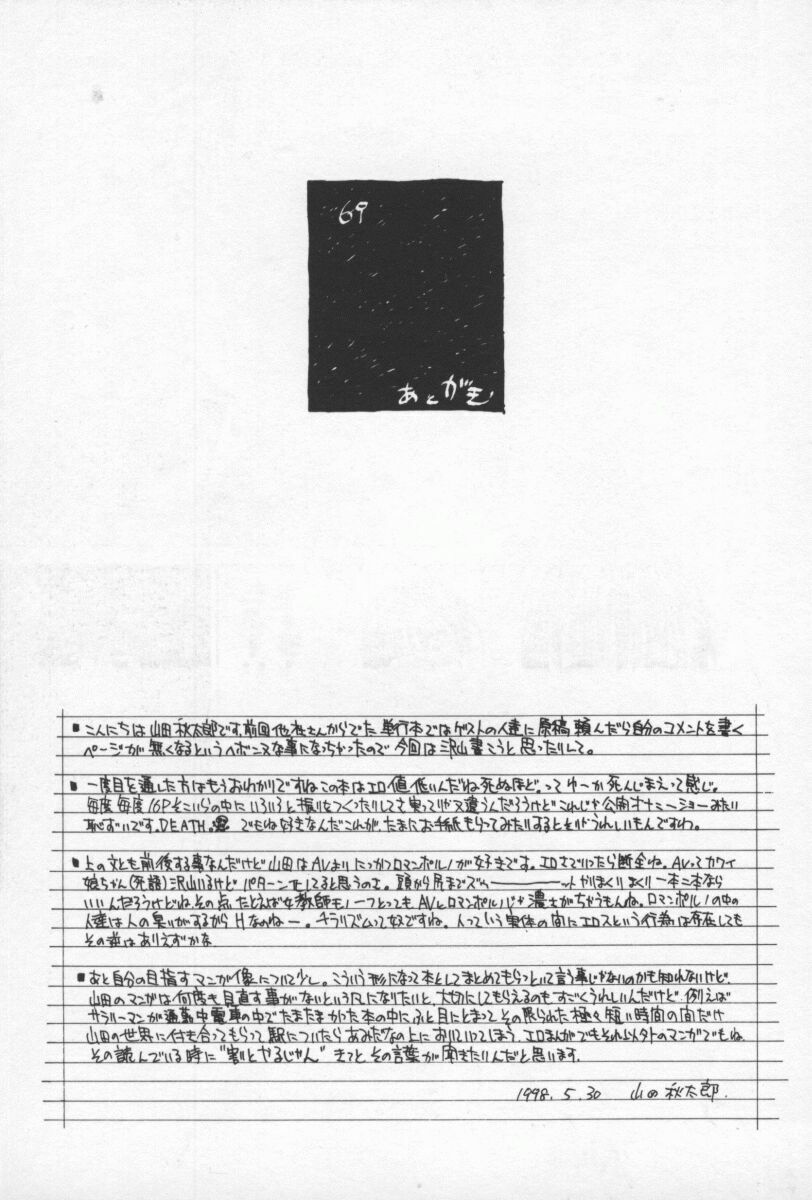 69
あとがき
■こんにちは山田秋太郎です。前回他社さんからでた単行本ではゲストの人達に原稿頼んだら自分のコメントを書く
ページが無くなるというヘボンヌな事になっちゃったので今回は沢山書こうと思ったりして。
■一度目を通した方はもうおわかりですねこの本はエロ値低いんだよね死ぬほど。ってゆーか死んじまえって感じ。
毎度毎度16Pそこいらの中にいろいろと振りをつくったりしてさ
違うんだろうけどこれじゃ公開オナニーショーみたい
恥ずいです。DEATH。でもね好きなんだこれが。たまにお手紙もらってみたりするとそりゃうれしいもんですわ。
■上の文とも前後する事なんだけど山田はAVよりにっかつロマンポルノが好きです。エロさでいったら断全ね。AVってカワイ
娘ちゃん(死語)沢山いるけどパターン化してると思うのさ。頭から尻までズゥーーーーット やりまくりまくり一本二本なら
いいんだろうけどね。その点たとえば女教師モノ一つとってもAVとロマンポルノじゃ濃さがちゃうもんね。ロマンポルノの中の
人達は人の臭いがするからHなのねー。チラリズムって奴ですね。人っていう実体の間にエロスという行為は存在しても
その逆はありえずかな
■あと自分の目指すマンガ像について少し。こういう形になって本としてまとめてもらっといて言う事じゃないのかも知れないけど
山田のマンガは何度も見直す事がないという風になりたいと。大切にしてもらえるのもすごくうれしいんだけど例えば
サラリーマンが通勤中電車の中でたまたまかった本の中にふと目にとまってその限られた極々短い時間の間だけ
山田の世界に付き合ってもらって駅についたらあみだなの上においていてしまう。エロまんがでもそれ以外のマンガでもね
その読んでいる時に"割とやるじゃん"きっと、その言葉が聞きたいんだと思います。
1998.5.30 山田秋太郎.